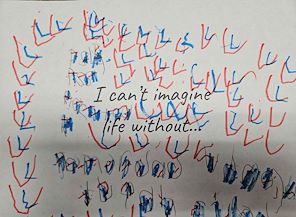 I can't imagine
life without...